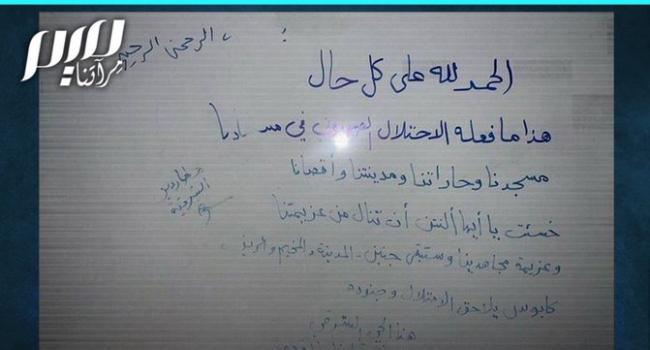 ، الرحمن الرحيم
الحمد لله على كل حال
هذا ما فعله الاحتلال في
مسجدنا وحاراتنا ومدينتنا وأقصانا
خسئت يا أيها النتن أن تنال من عزيمتنا
وعزيمة مجاهدينا وستبقى جنين - المدينة والمخيم والريف
كابوس يلاحق الاحتلال وجنوده
هذا الحي الشرقي